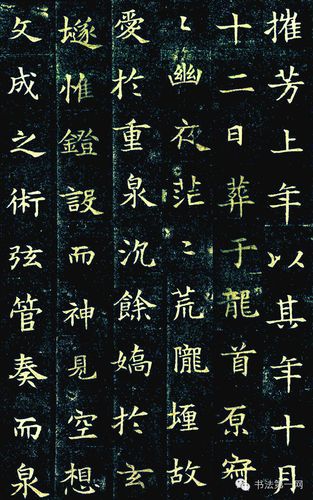 摧芳上年以其年十月
十二日葬于龍首原窅
〻幽夜茫〻荒隴堙故
愛於重泉沉餘嬌於玄
惟鐙設而神見空想
文成之術弦管奏而泉
书法第一网